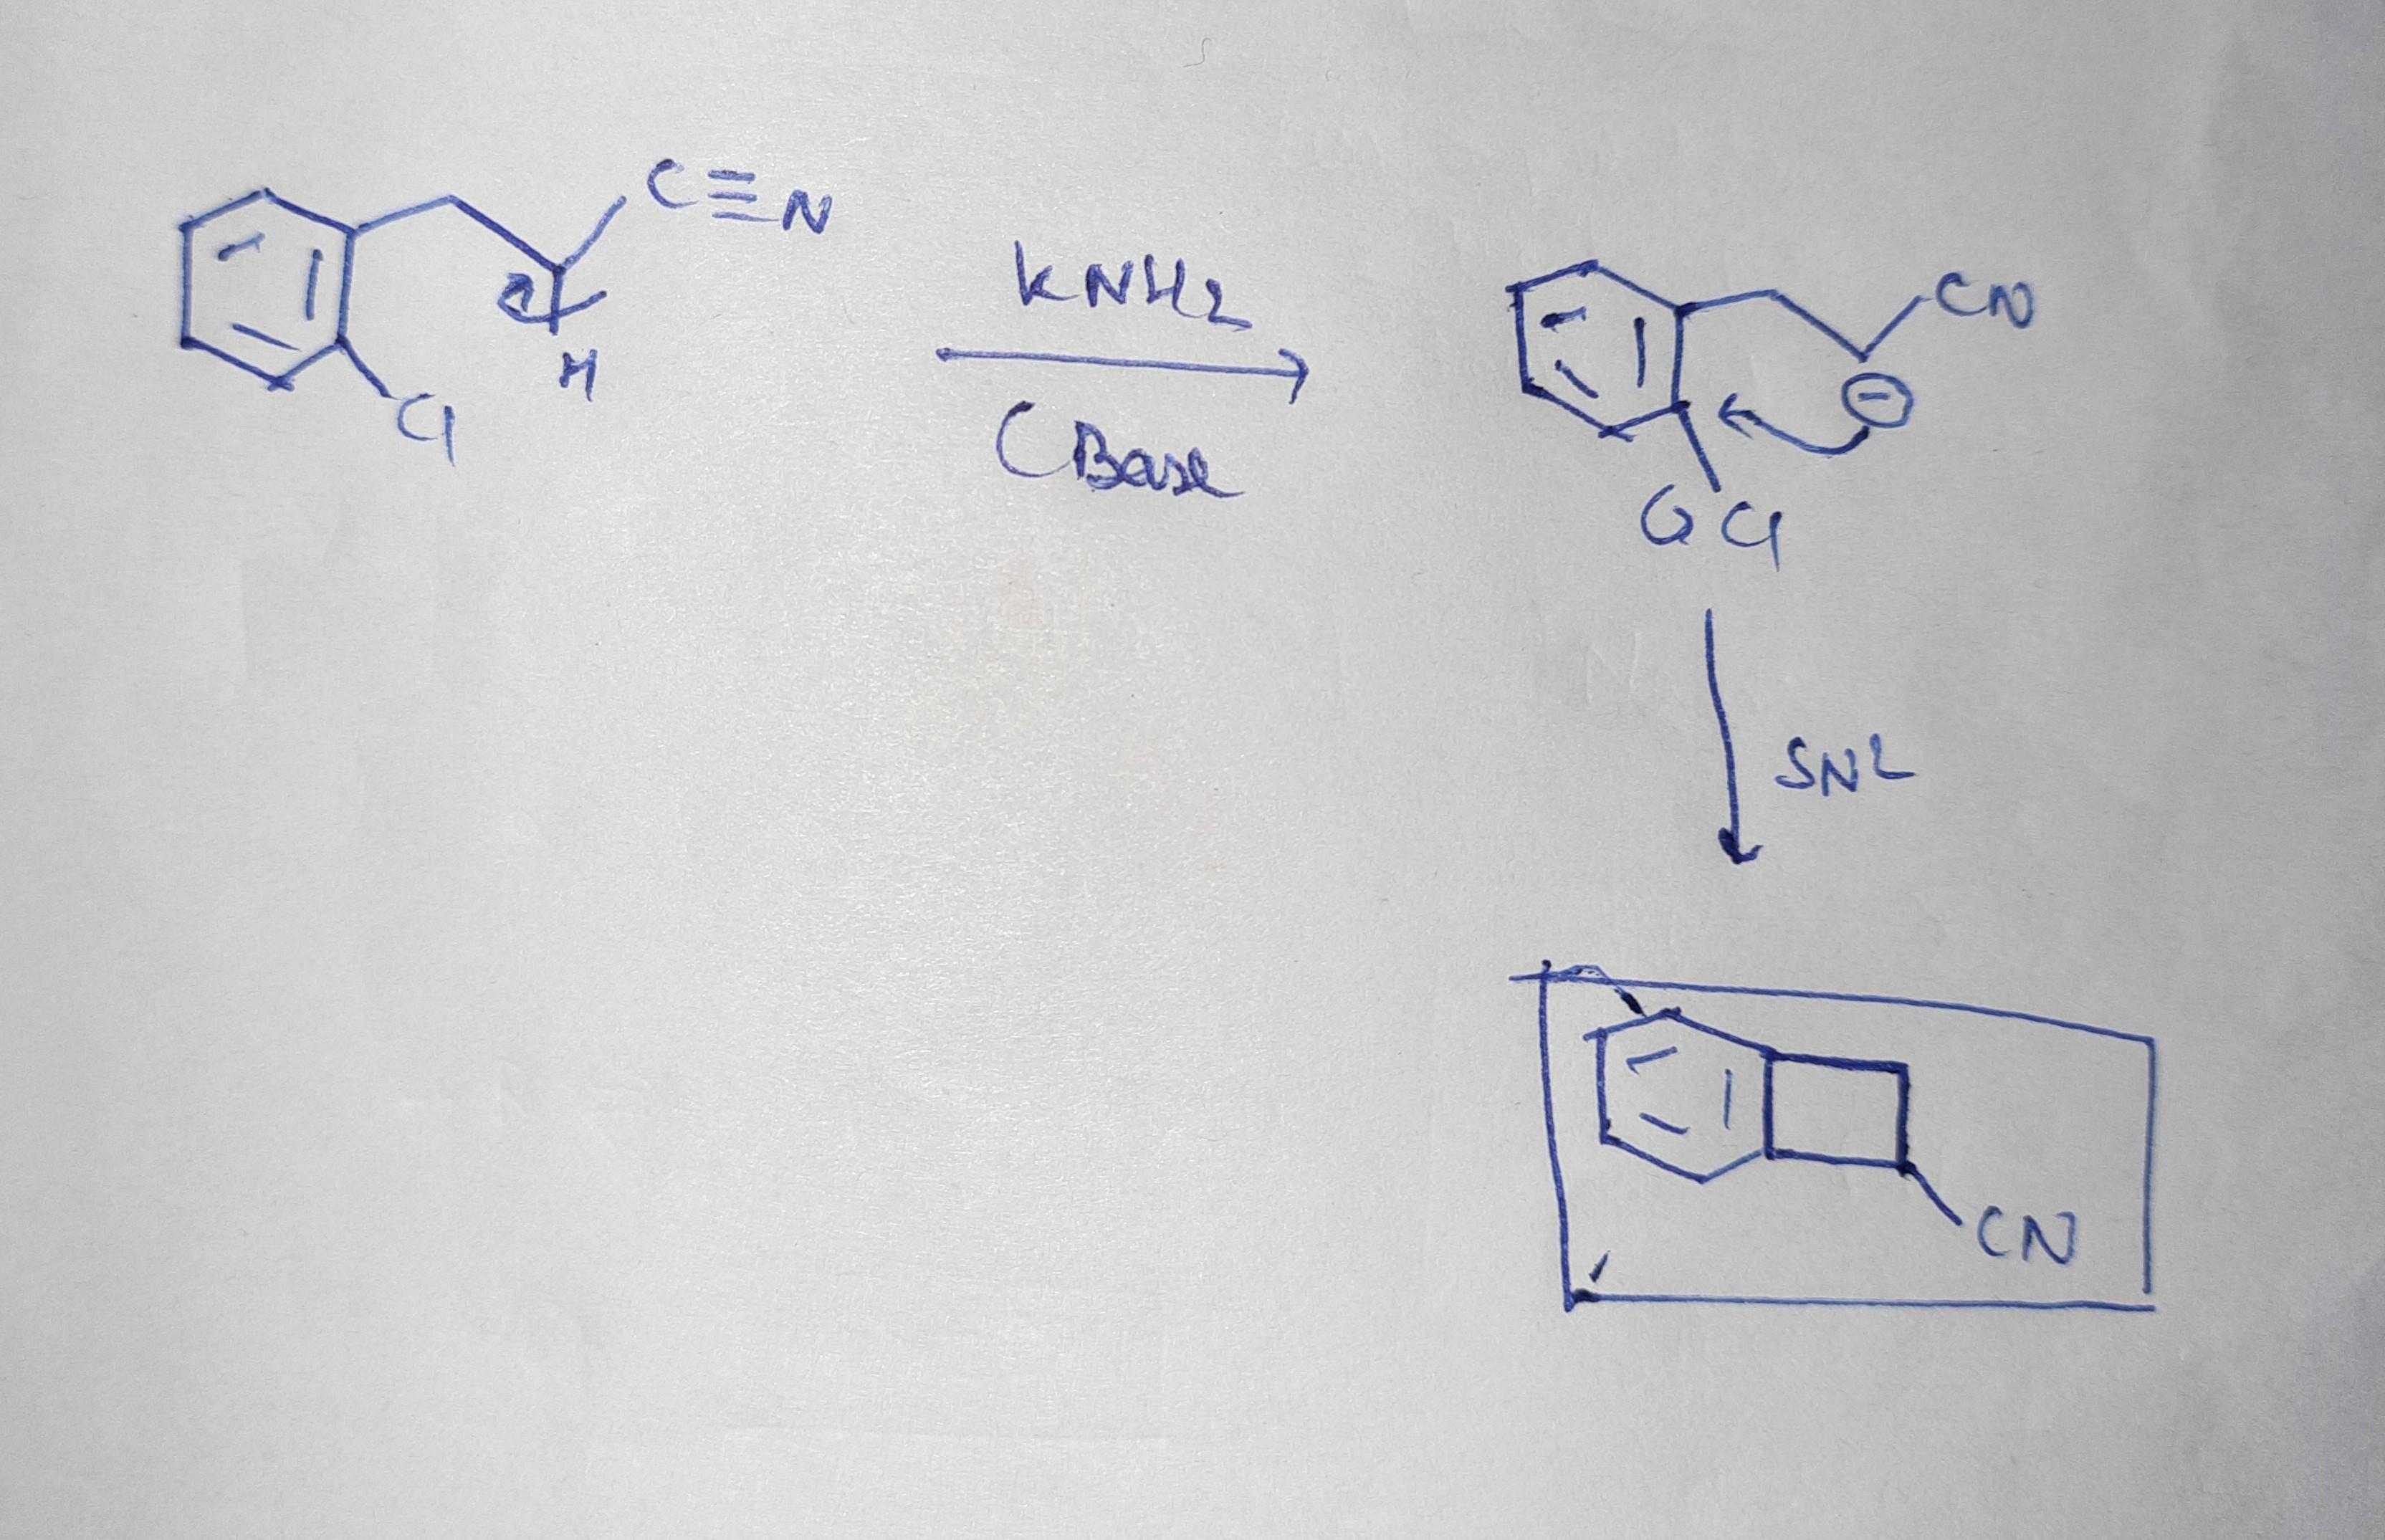 C≡N
H
Cl
KNH2
(Base
CN
⊖
G Cl
SN2
CN